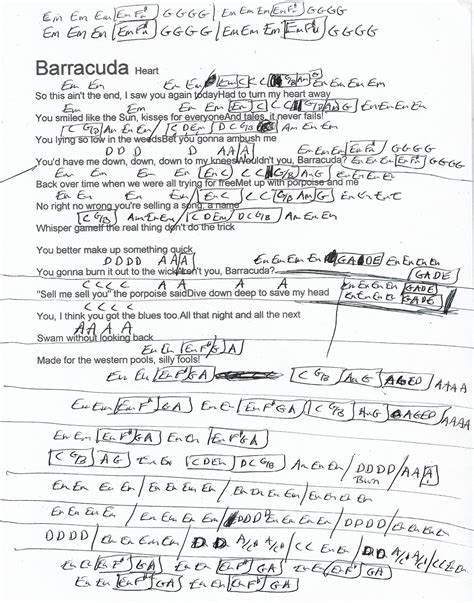 Em Em Em Em Em F# G G G G Em Em Em Em F# G G G G
Em Em Em Em F# G G G G Em Em Em Em F# G G G G
Barracuda Heart
Em Em Em Em Em C C C G/B Am G Em Em Em Em
So this ain't the end, I saw you again todayHad to turn my heart away
Em Em Em Em Em C C G/B Am G Em Em Em Em
You smiled like the Sun, kisses for everyoneAnd tales, it never fails!
C G/B Am Em Em C D Em D C G/B Am Em Em
You lying so low in the weedsBet you gonna ambush me
D D D D A A A Em Em Em Em F# G G G G
You'd have me down, down, down to my kneesWouldn't you, Barracuda?
Em Em Em Em Em C C G/B Am G Em Em Em Em
Back over time when we were all trying for freeMet up with porpoise and me
Em Em Em Em Em C C G/B Am G
No right no wrong you're selling a song, a name
C G/B Am Em Em C D Em D C G/B Am Em Em
Whisper gameIf the real thing don't do the trick
You better make up something quick
D D D D A A A Em Em Em Em G A D E Em Em Em Em
You gonna burn it out to the wickAren't you, Barracuda?
G A D E
C C C C A A A A Em Em Em Em G A D E
"Sell me sell you" the porpoise saidDive down deep to save my head
Em Em Em Em G A D E
C C C C
You, I think you got the blues too.All that night and all the next
A A A A
Swam without looking back
Em Em Em F# G A
Made for the western pools, silly fools!
Em Em Em F# G A C G/B Am G A G E D A A A A
Em Em Em F# G A Em Em Em F# G A C G/B Am G A G E D A A A A
Em Em Em F# G A Em Em Em F# G A
C G/B A G Em Em C D Em D C G/B Am Em Em / D D D D / A A A
Burn
Em Em Em Em / Em Em Em Em / Em Em Em Em / Em Em Em Em
Em Em Em Em / Em Em Em Em / D D D Em Em Em Em / D D D D / Em Em Em Em
D D D D / Em Em Em Em / D D A/C# A/C# / C C Em Em / D D A/C# A/C# / C C Em Em
Em Em Em F# G A Em Em Em F# G A Em Em Em F# G A
Em Em Em F# G A Em Em Em F# G A